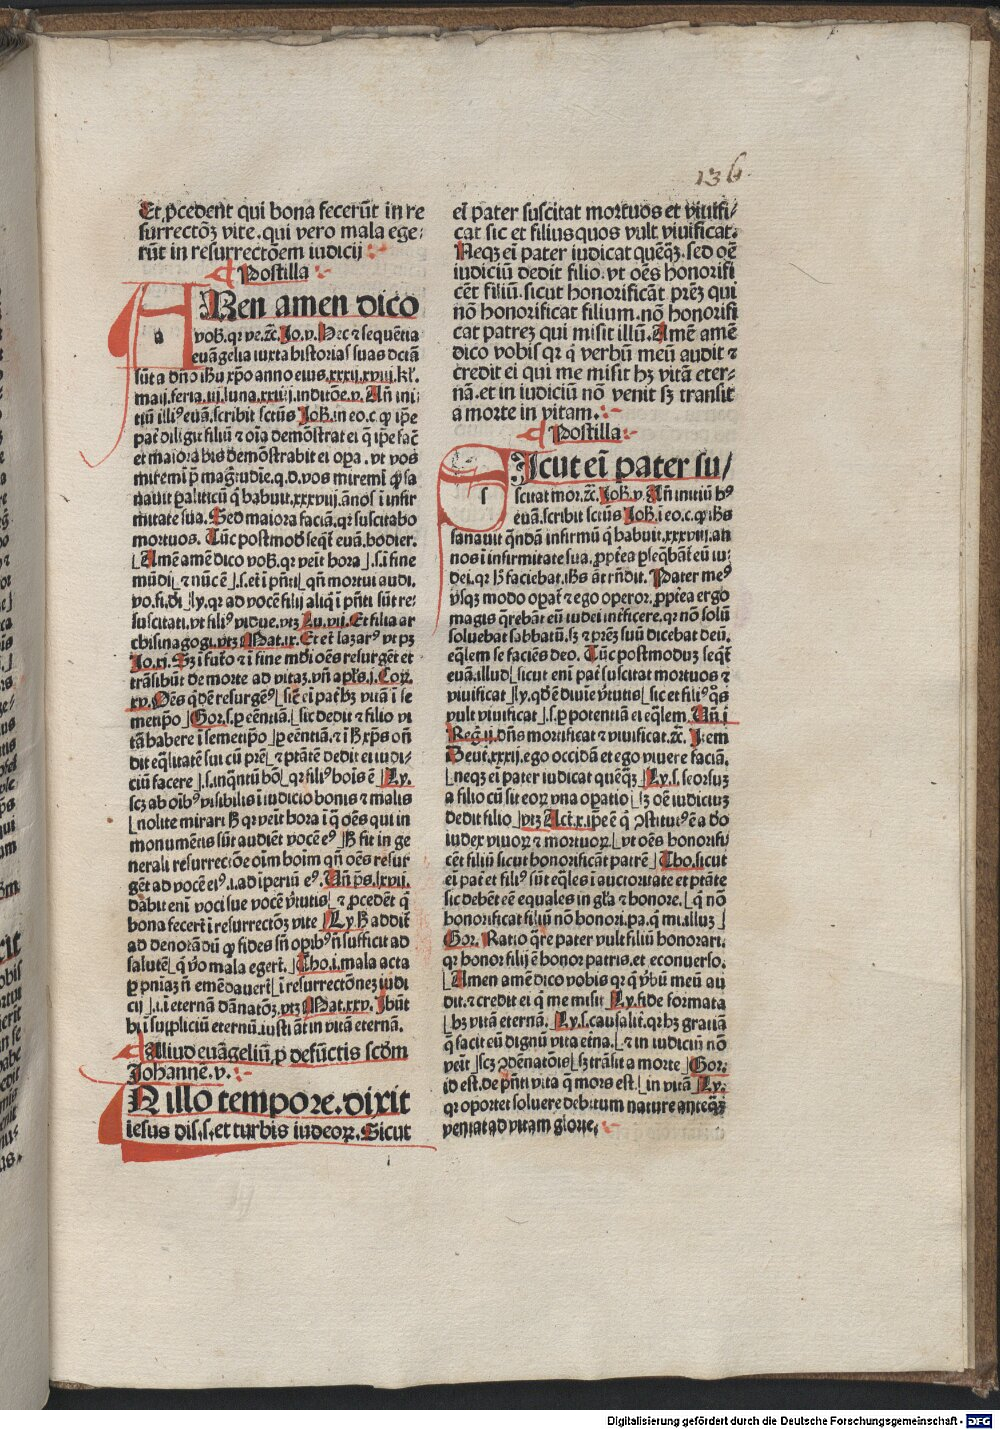 136
Et ꝓcedent qui bona fecerūt in re
surrectōꝫ vite. qui vero mala ege-
rūt in resurrectōem iudicij
Postilla
AMen amen dico
vob̄. qr ve. ꝛc̄. Jo. v. Hec ⁊ sequētia
euāgelia iuxta historias suas dc̄tā
sūt a dn̄o ih̄u xp̄o anno eius. xxxij. xviij. kl̓.
maij. feria. iij. luna. xxiij. inditōe. v. An̄ ini
tiū illiꝰ euā. scribit sctūs Joh̄. in eo. c. ꝙ ip̄e
pat̄ diligit filiū ⁊ oīa demōstrat ei q̄ ip̄e fac̄
et maiora his demōstrabit ei oꝑa. vt vos
miremī p̄ mag̓tudīe. q. d. vos miremī ꝙ sa
nauit paliticū q̓ habuit. xxxviij. ānos ī infir
mitate sua. Sed maiora faciā. qꝛ suscitabo
mortuos. Tūc postmoð seq̄t̄ euā. hodier.
Amē amē dico vob̄. qꝛ veīt hora ⌋. s. ī fine
mūdi ⌊⁊ nūc ē⌋. s. et̄ ī pn̄ti ⌊qn̄ mortui audi.
vo. fi. di⌋ ly. qꝛ ad vocē filij aliq̓ ī pn̄ti sūt re-
suscitati. vt filiꝰ vidue. vtꝫ Lu. vij. Et filia ar
chisinagogi. vtꝫ Mat. ix. Et et̄ lazarꝰ vt pꝫ
Jo. xj. Sꝫ ī fut̓o ⁊ ī fine mūdi oēs resurgēt et
trāsibūt de morte ad vitaꝫ. vn̄ apl̓s. j. Coꝝ.
xv. Oēs q̓dē resurgemꝰ ⌊sic̄ ei pat̄ hꝫ vitā ī se
metip̄o⌋ Gor. s. ꝑ eēntiā. ⌊sic dedit ⁊ filio vi
tā habere ī semetip̄o⌋ ꝑ eēntiā. ⁊ ī h̄ xp̄s oñ
dit eq̄litatē sui cū prē ⌊⁊ ptātē dedit ei iudi-
ciū facere⌋. s. inq̄ntū hō ⌊qꝛ filiꝰ hoīs ē⌋ Ly.
scꝫ ab oībꝰ visibilis ī iudicio bonis ⁊ malis
⌊nolite mirari h̄ qꝛ veīt hora ī q̄ oēs qui in
monumētis sūt audiēt vocē eꝰ⌋ h̄ fit in ge
nerali resurrectōe oīm hoīm qn̄ oēs resur
gēt ad vocē eiꝰ. i. ad īperiū eꝰ. Vn̄ ps̄. lxvij.
dabit eni voci sue vocē v̓tutis ⌊⁊ ꝓcedēt q̓
bona fecer̄t ī resurrectōꝫ vite⌋ Ly. h̄ addit̄
ad denotādū ꝙ fides sn̄ oꝑibꝰ n̄ sufficit ad
salutē ⌊q̓ v̓o mala eger̄t.⌋ Tho. i. mala acta
ꝑ pn̄iaꝫ n̄ emēdauer̄t ⌊ī resurrectōneꝫ iudi
cij⌋. i. ī eternā dānatōꝫ. vtꝫ Mat. xxv. Ibūt
hi ī suppliciū eternū. iusti aūt in vitā eternā.
Aliud euāgeliū. ꝓ defūctis scd̄m
Johannē. v.
IN illo tempore. dixit
iesus dis. s. et turbis iudeoꝝ. Sicut
ei̅ pater suscitat mortuos et viuifi-
cat sic et filius quos vult viuificat.
Neqꝫ ei̅ pater iudicat quēqꝫ. sed oē
iudiciū dedit filio. vt oēs honorifi
cēt filiū. sicut honorificāt prēꝫ qui
nō honorificat filium. nō honorifi
cat patreꝫ qui misit illū. Amē amē
dico vobis qꝛ q̓ verbū meū audit ⁊
credit ei qui me misit hꝫ vitā eter-
nā. et in iudiciū nō venit sꝫ transit
a morte in vitam.
Postilla
SIcut ei̅ pater su/
scitat mor. ꝛc̄. Joh̄. v. An̄ initiū hꝰ
euā. scribit sctūs Joh̄. ī eo. c. ꝙ ih̄s
sanauit q̄ndā infirmū q̓ habuit. xxxviij. an
nos ī infirmitate sua. ꝓpt̓ea ꝑseq̄bāt̄ eū iu-
dei. qꝛ h̄ faciebat. ih̄s āt rn̄dit. Pater meꝰ
vsqꝫ modo oꝑat̄ ⁊ ego operor. ꝓpt̓ea ergo
magis q̄rebāt eū iudei int̓ficere. qꝛ nō solū
soluebat sabbatū. sꝫ ⁊ prēꝫ suū dicebat deū.
eq̄lem se faciēs deo. Tūc postmoduꝫ seq̄t̄
euā. illud ⌊sicut eni̅ pat̄ suscitat mortuos ⁊
viuificat⌋ ly. qd̄ ē diuīe v̓tutis ⌊sic et filiꝰ q̓s
vult viuificat⌋. s. ꝑ potentiā ei eq̄lem. Vn̄. j
Reg. ij. dn̄s mortificat ⁊ viuificat. ꝛc̄. Item
Deut. xxxij. ego occidā et ego viuere faciā.
⌊neqꝫ ei̅ pater iudicat quēqꝫ⌋ Ly. s. seorsuꝫ
a filio cū sit eoꝝ vna oꝑatio ⌊sꝫ oē iudiciuꝫ
dedit filio⌋ vtꝫ Act. x. ip̄e ē q̓ ꝯstitutꝰ ē a do
iudex viuoꝝ ⁊ mortuoꝝ ⌊vt oēs honorifi
cēt filiū sicut honorificāt patrē⌋ Tho. sicut
ei̅ pat̄ et filiꝰ sūt eq̄les ī auctoritate et ptāte
sic debēt eē equales in gl̓a ⁊ honore. ⌊q̓ nō
honorificat filiū nō honori. pa. q̓ mi. illuꝫ⌋
Gor. Ratio q̄re pater vult filiū honorari.
qꝛ honor filij ē honor patris. et econuerso.
⌊Amen amē dico vobis qꝛ q̓ v̓bū meū au
dit. ⁊ credit ei q̓ me misit⌋ Ly. fide formata
⌊hꝫ vitā eternā. Ly. s. causalit̓. qꝛ hꝫ gratiā
q̄ facit eū dignū vita et̓na. ⌊⁊ in iudiciū nō
veīt⌋ scꝫ ꝯdēnatōis⌊ sꝫ trāsit a morte⌋ Gor.
id est. de pn̄ti vita q̄ mors est. ⌊in vitā⌋ Ly.
qꝛ oportet soluere debitum nature anteq̄ꝫ
veniat ad vitam glorie.
Digitalisierung gefördert durch die Deutsche Forschungsgemeinschaft - DFG